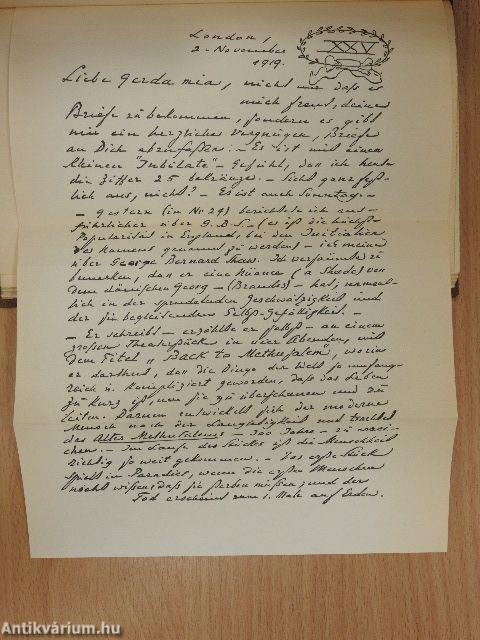 London,
2. November
1919.
XXV
Liebe Gerda mia, nicht nur daß es
mich freut, deine
Briefe zu bekommen, sondern es gibt
mir ein herzliches Vergnügen, Briefe
an Dich abzufaßen. – Es ist mit einem
kleinen "Jubilate" – Gefühl, daß ich heute
die Ziffer 25 bekränze. – Sieht ganz fest-
lich aus, nicht? – Es ist auch Sonntag. –
– Gestern (in Nr 24) berichtete ich aus-
führlicher über G.B.S. – (es ist die höchste
Popularität in England, bei den Initialen
des Namens genannt zu werden) – ich meine
über George Bernard Shaw. Ich versäumte zu
bemerken, dan er eine Nüance (a Shade) von
dem dänischen Georg – (Brandes) – hat; nament-
lich in der sprudelnden Geschwätzigkeit und
der sie begleitenden Selbst-Gefälligkeit. –
– Er schreibt – erzählte er selbst – an einem
großen Theaterstück in vier Abenden, mit
dem Titel „Back to Methusalem", worin
er darthut, daß die Dinge der Welt so umfang-
reich u. kompliziert geworden, daß das Leben
zu kurz ist, um sie zu überschauen und zu
leiten. Darum entwickelt sich der moderne
Mensch nach der Langlebigkeit und trachtet
das Alter Methusalems – 300 Jahre – zu errei-
chen. – Im Laufe des Stückes ist die Menschheit
richtig so weit gekommen. – Das erste Stück
spielt im Paradies, wenn die ersten Menschen
nicht wissen, daß sie sterben müßen und der
Tod erscheint zum 1. Male auf Erden.
Antikvárium.hu